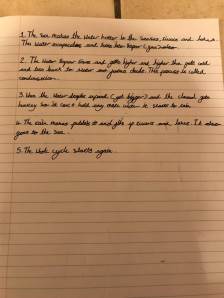 1. The sun makes the water hotter in the
The water evaporates and turns into Vapour (gas)
2. The water Vapour rises and gets higher and higher then gets cold
and turns back to water and forms clouds. This process is called
condensation.
3. When the water droplets expand (get bigger) and the cloud gets
heavy to hold any more water it starts to rain
4. The rain makes puddles and fills up rivers and lakes. It also
goes to the sea.
5. The whole cycle starts again.